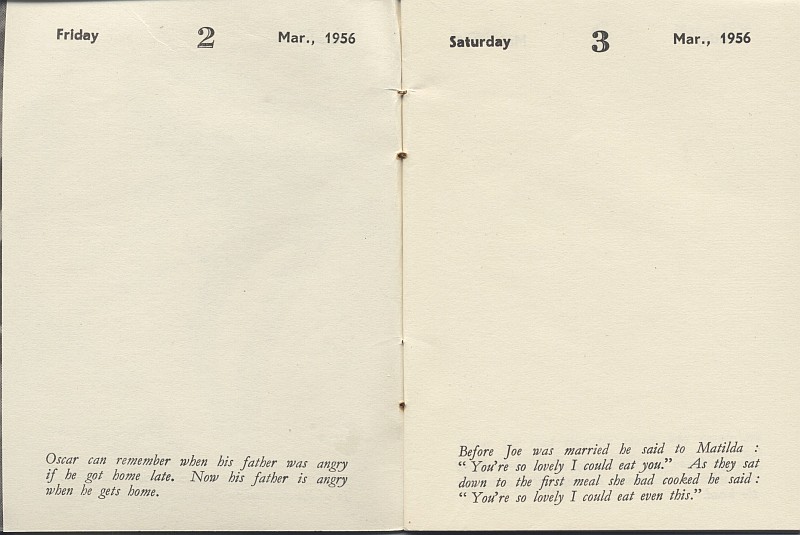 Friday 2 Mar., 1956
Oscar can remember when his father was angry
if he got home late. Now his father is angry
when he gets home.
Saturday 3 Mar., 1956
Before Joe was married he said to Matilda :
“ You’re so lovely I could eat you.” As they sat
down to the first meal she had cooked he said :
“ You’re so lovely I could eat even this.”